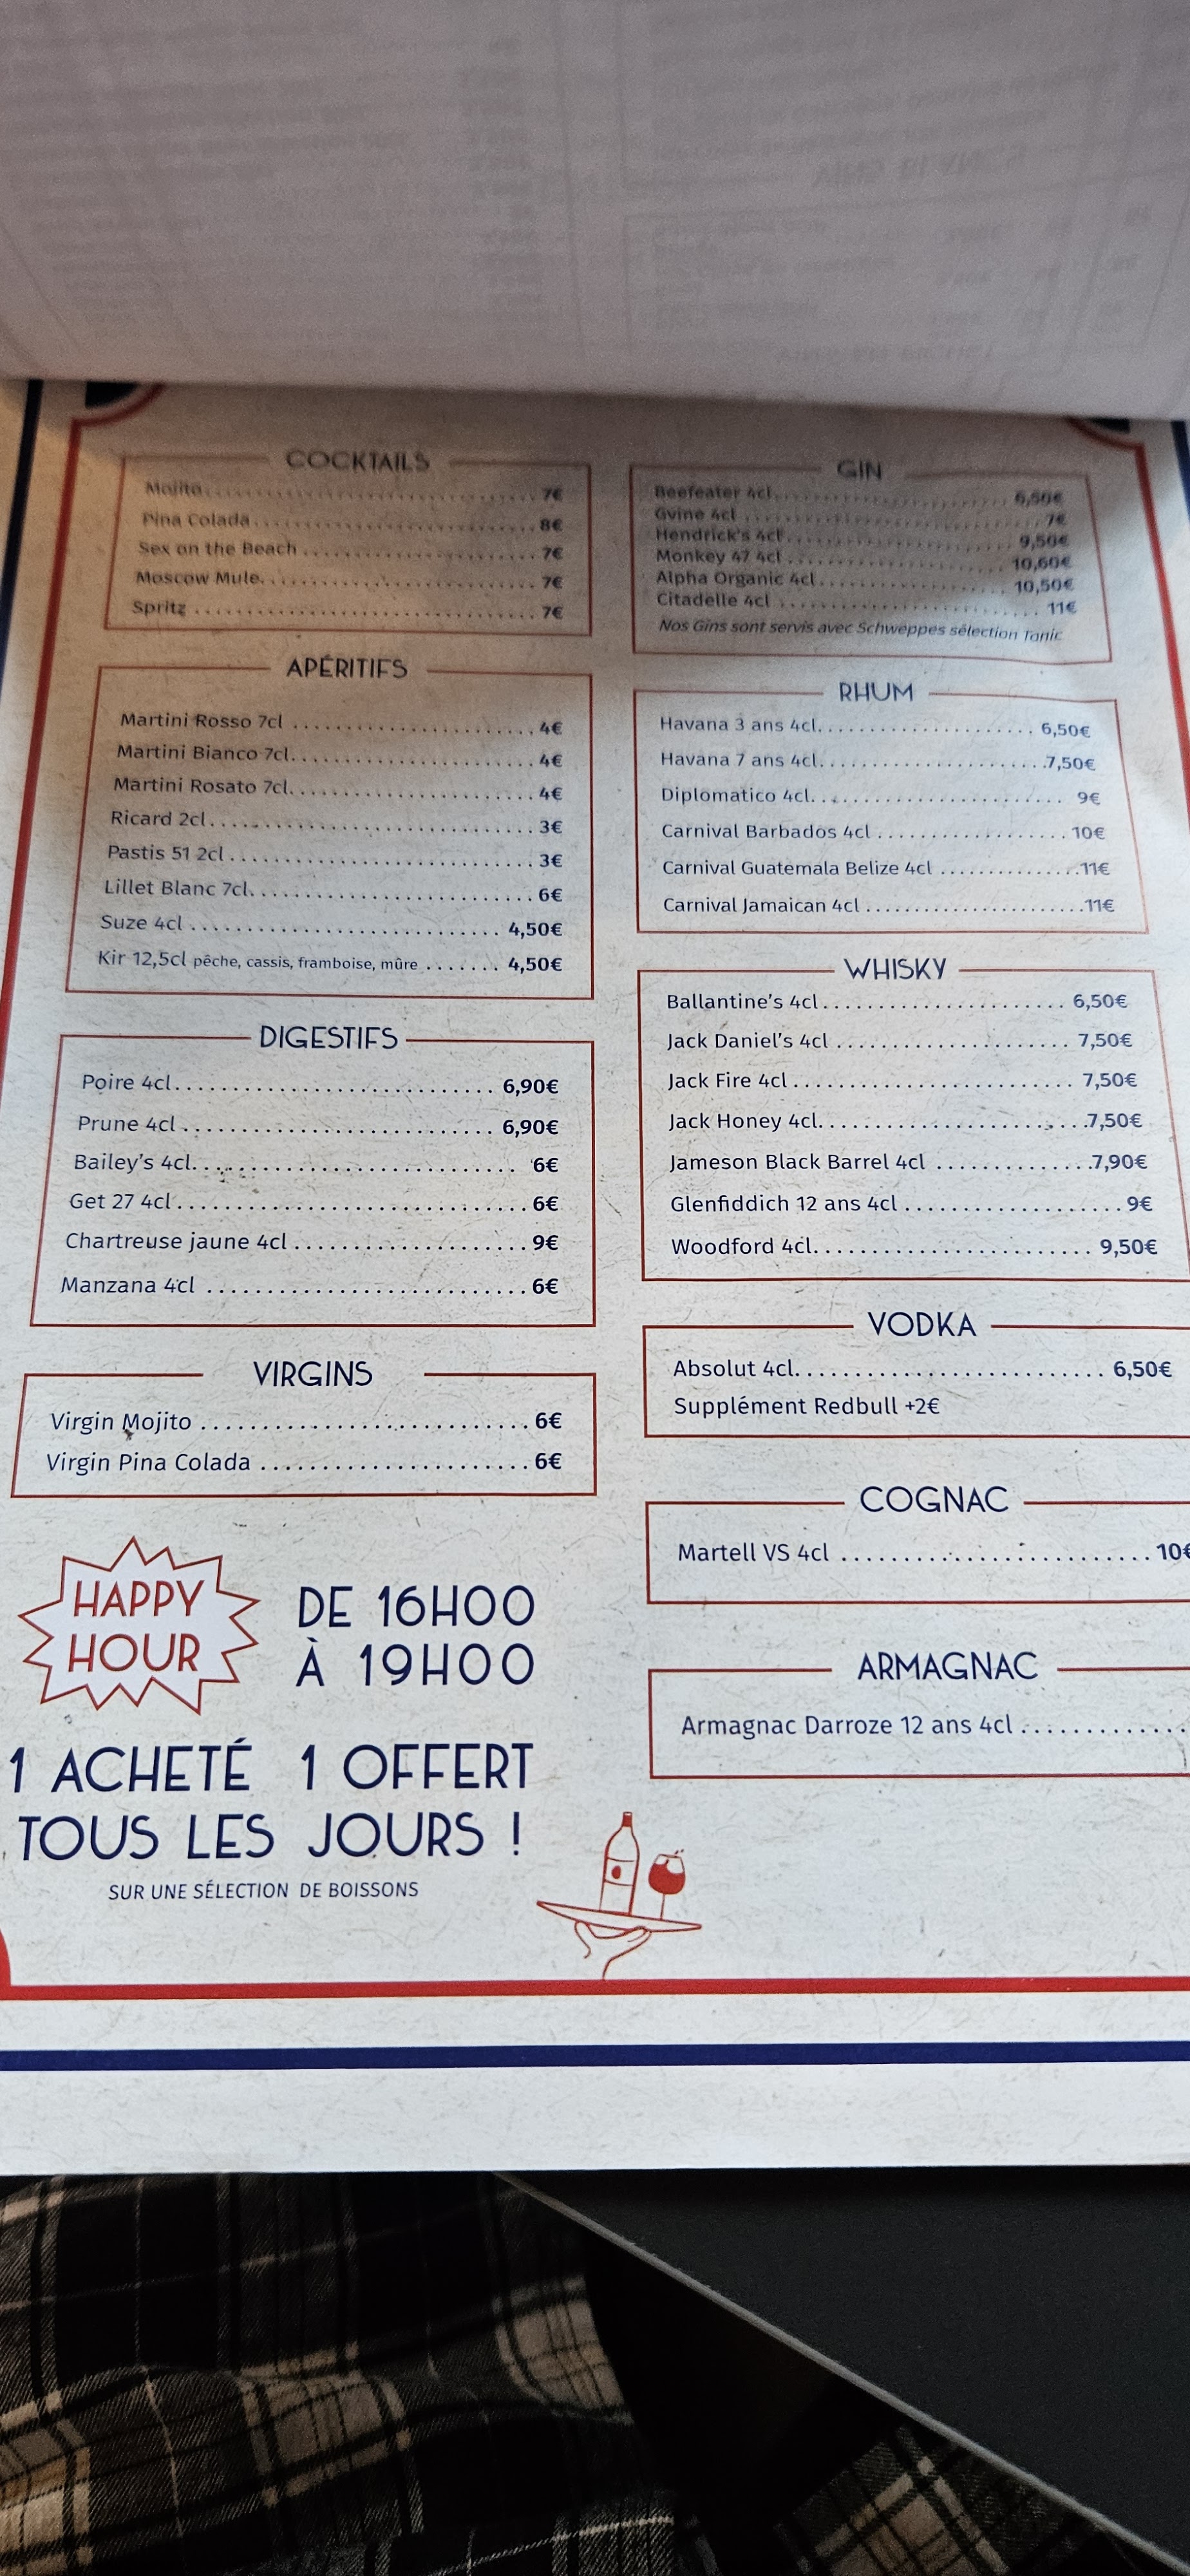 COCKTAILS
Mojito 7€
Pina Colada 8€
Sex on the Beach 7€
Moscow Mule 7€
Spritz 7€
APÉRITIFS
Martini Rosso 7cl 4€
Martini Bianco 7cl 4€
Martini Rosato 7cl 4€
Ricard 2cl 3€
Pastis 51 2cl 3€
Lillet Blanc 7cl 6€
Suze 4cl 4,50€
Kir 12,5cl pêche, cassis, framboise, mûre 4,50€
DIGESTIFS
Poire 4cl 6,90€
Prune 4cl 6,90€
Bailey's 4cl 6€
Get 27 4cl 6€
Chartreuse jaune 4cl 9€
Manzana 4cl 6€
VIRGINS
Virgin Mojito 6€
Virgin Pina Colada 6€
HAPPY
HOUR
DE 16H00
À 19H00
1 ACHETÉ 1 OFFERT
TOUS LES JOURS !
SUR UNE SÉLECTION DE BOISSONS
GIN
Beefeater 4cl 6,50€
Gvine 4cl 7€
Hendrick's 4cl 9,50€
Monkey 47 4cl 10,60€
Alpha Organic 4cl 10,50€
Citadelle 4cl 11€
Nos Gins sont servis avec Schweppes sélection Tonic
RHUM
Havana 3 ans 4cl 6,50€
Havana 7 ans 4cl 7,50€
Diplomatico 4cl 9€
Carnival Barbados 4cl 10€
Carnival Guatemala Belize 4cl 11€
Carnival Jamaican 4cl 11€
WHISKY
Ballantine's 4cl 6,50€
Jack Daniel's 4cl 7,50€
Jack Fire 4cl 7,50€
Jack Honey 4cl 7,50€
Jameson Black Barrel 4cl 7,90€
Glenfiddich 12 ans 4cl 9€
Woodford 4cl 9,50€
VODKA
Absolut 4cl 6,50€
Supplément Redbull +2€
COGNAC
Martell VS 4cl 10€
ARMAGNAC
Armagnac Darroze 12 ans 4cl